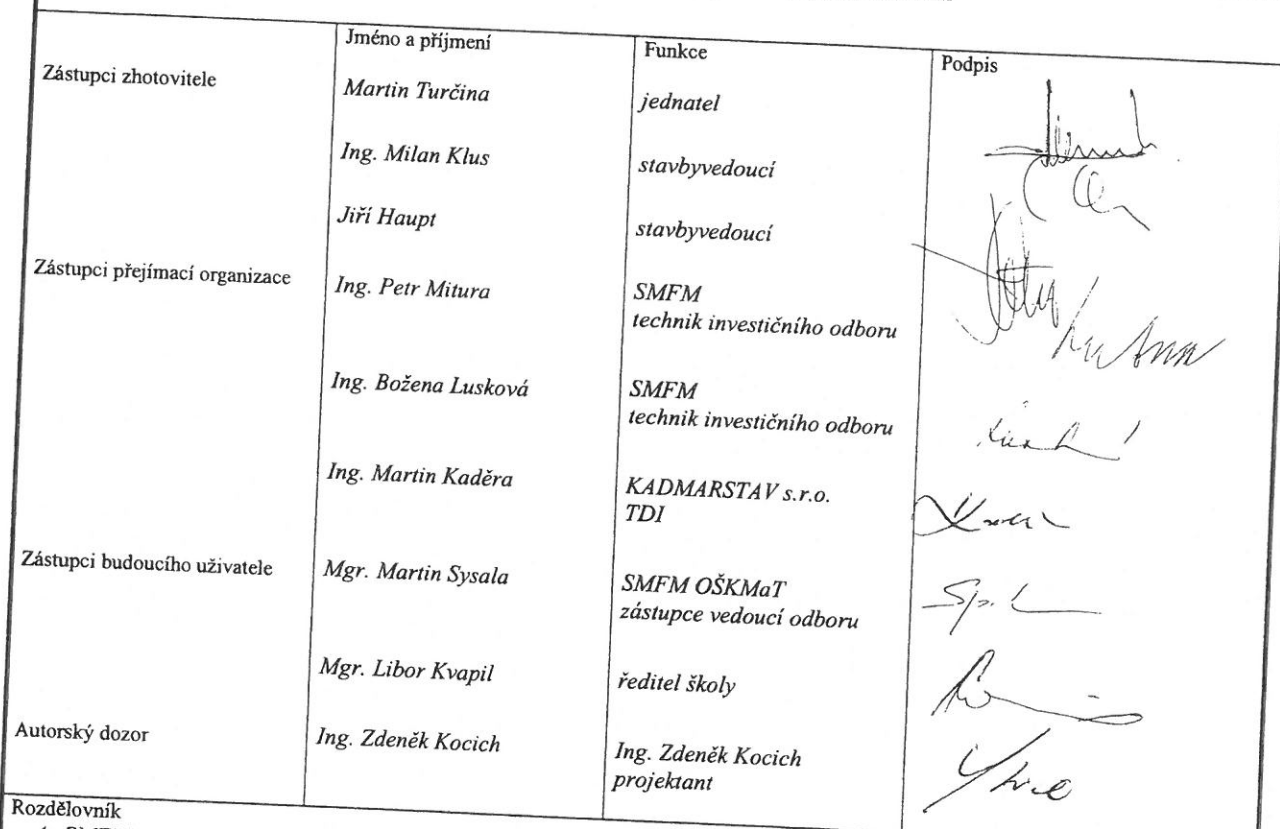 Jméno a příjmení Funkce Podpis
Zástupci zhotovitele Martin Turčina jednatel
Ing. Milan Klus stavbyvedoucí
Jiří Haupt stavbyvedoucí
Zástupci přejímací organizace Ing. Petr Mitura SMFM
technik investičního odboru
Ing. Božena Lusková SMFM
technik investičního odboru
Ing. Martin Kaděra KADMARSTAV s.r.o.
TDI
Zástupci budoucího uživatele Mgr. Martin Sysala SMFM OŠKMaT
zástupce vedoucí odboru
Mgr. Libor Kvapil ředitel školy
Autorský dozor Ing. Zdeněk Kocich Ing. Zdeněk Kocich
projektant
Rozdělovník